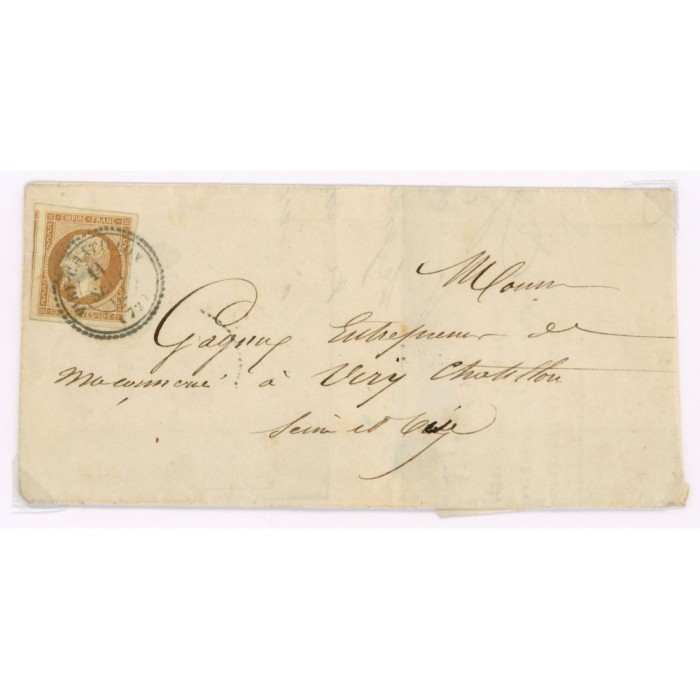 EMPIRE FRANC
10 C
(72)
Gagny Entrepreneur de
maçonnerie à Viry Chatillon
Seine et Oise